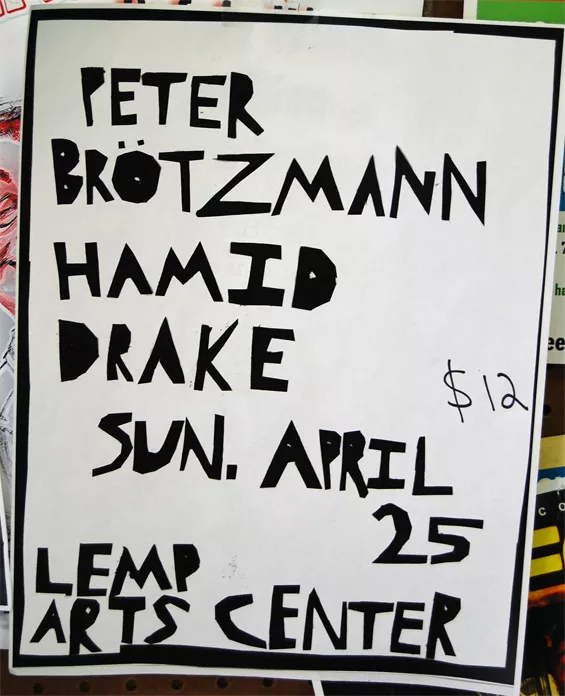 PETER
BRÖTZMANN
HAMID
DRAKE
$12
SUN. APRIL
25
LEMP
ARTS CENTER